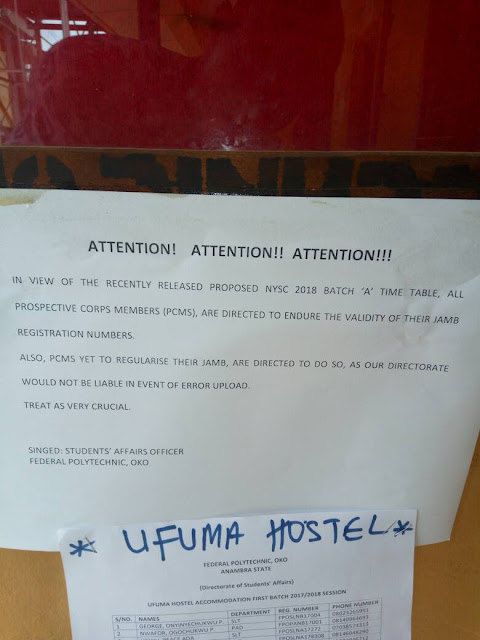 ATTENTION! ATTENTION!! ATTENTION!!!
IN VIEW OF THE RECENTLY RELEASED PROPOSED NYSC 2018 BATCH 'A' TIME TABLE, ALL
PROSPECTIVE CORPS MEMBERS (PCMS), ARE DIRECTED TO ENDURE THE VALIDITY OF THEIR JAMB
REGISTRATION NUMBERS.
ALSO, PCMS YET TO REGULARISE THEIR JAMB, ARE DIRECTED TO DO SO, AS OUR DIRECTORATE
WOULD NOT BE LIABLE IN EVENT OF ERROR UPLOAD.
TREAT AS VERY CRUCIAL.
SINGED: STUDENTS' AFFAIRS OFFICER
FEDERAL POLYTECHNIC, OKO
* UFUMA HOSTEL *
FEDERAL POLYTECHNIC, OKO
ANAMBRA STATE
(Directorate of Students' Affairs)
UFUMA HOSTEL ACCOMMODATION FIRST BATCH 2017/2018 SESSION
S/NO. NAMES DEPARTMENT REG. NUMBER PHONE NUMBER
1 GEORGE, ONYINYECHUKWU P. SLT
2 NWAFOR, OGOCHUKWU P. PAD
SLT